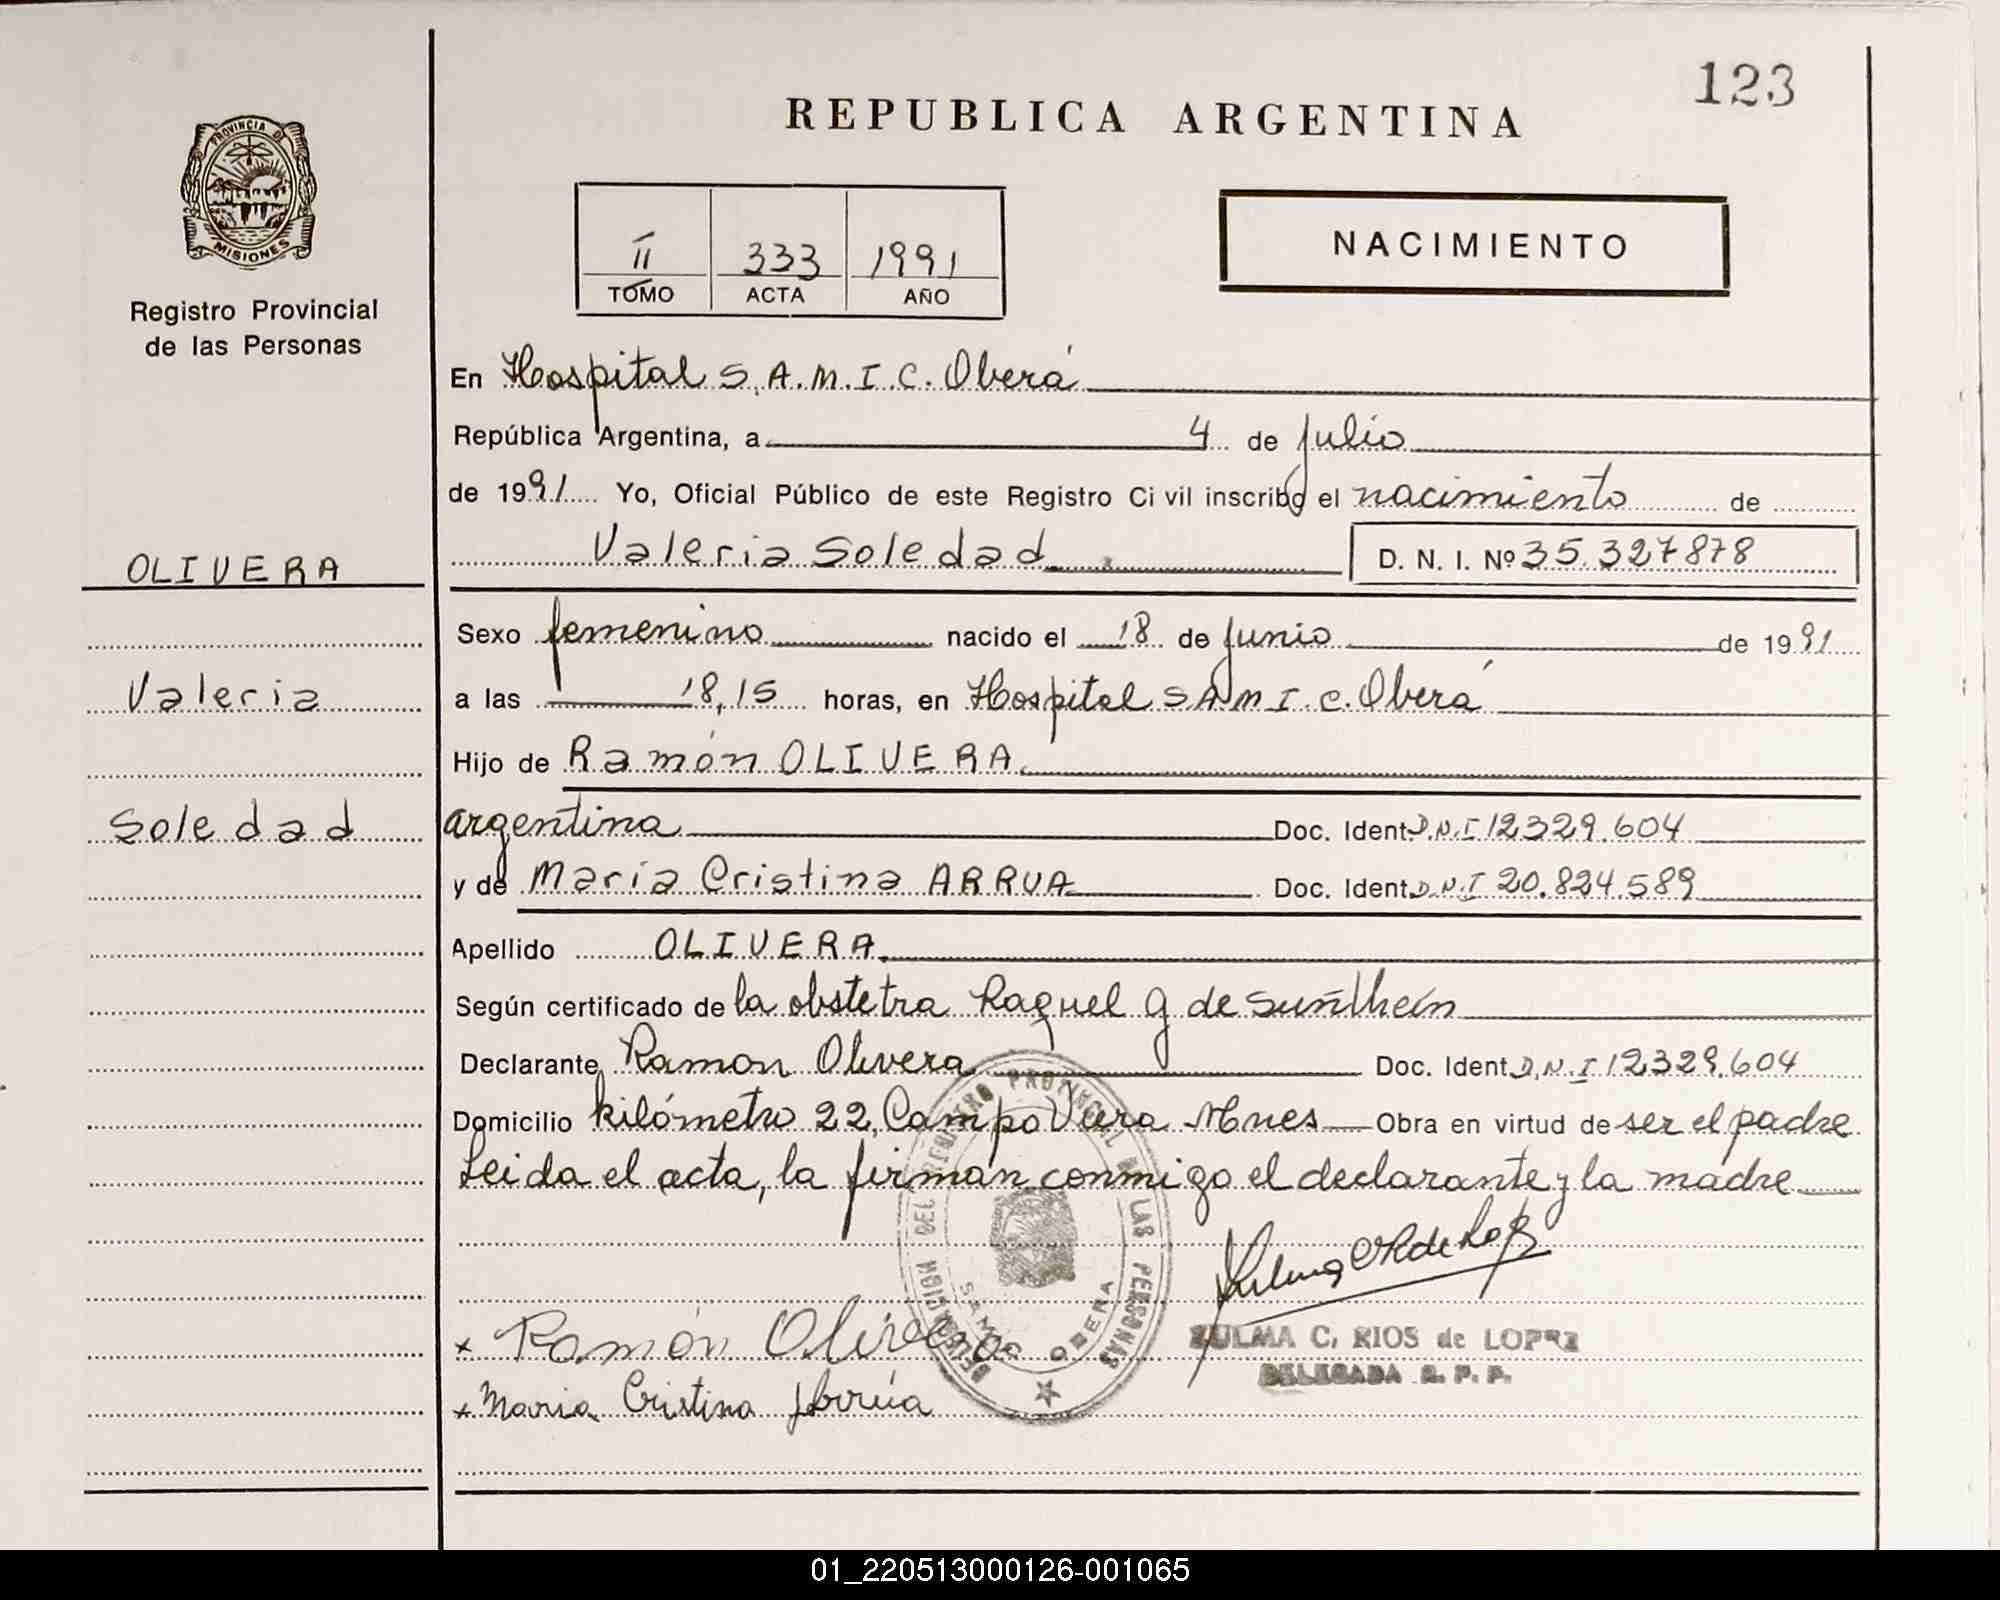 123
REPUBLICA ARGENTINA
PROVINCIA DE
MISIONES
Registro Provincial
de las Personas
II 333 1991
TOMO ACTA AÑO
NACIMIENTO
En Hospital S.A.M.I.C. Oberá
República Argentina, a 4 de Julio
de 1991 Yo, Oficial Público de este Registro Ci vil inscribo el nacimiento de
Valeria Soledad D. N. I. Nº 35.327878
OLIVERA
Sexo femenino nacido el 18 de Junio de 1991
Valeria
a las 18,15 horas, en Hospital S.A.M.I.C. Oberá
Hijo de Ramón OLIVERA
Soledad
argentina Doc. Ident. D.N.I 12329.604
y de María Cristina ARRUA Doc. Ident. D.N.I 20.824.589
Apellido OLIVERA
Según certificado de la obstetra Raquel G de
Declarante Ramon Olivera Doc. Ident. D.N.I 12329.604
Domicilio kilómetro 22, Campo Viera Mnes Obra en virtud de ser el padre
Leida el acta, la firman conmigo el declarante y la madre
DELEGACION DEL REGISTRO PROVINCIAL DE LAS PERSONAS
SAMIC OBERA
x Ramón Olivera
ZULMA C. RIOS de LOPEZ
DELEGADA R. P. P.
x Maria Cristina Arrúa
01_220513000126-001065